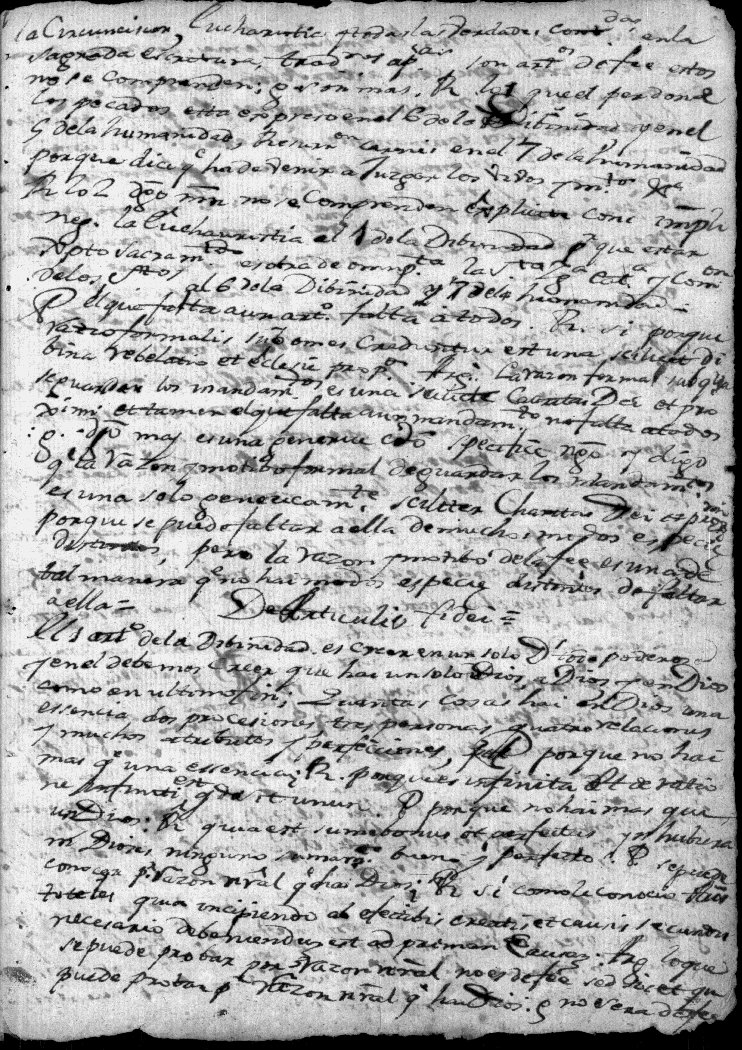 la Circuncision, Eucharistia, y todas las verdades contdas en la
sagrada escritura, y son artos de fee estos
no se comprenden, g. son mas. R. lo 1 que el perdon de
los pecados esta expreso en el 6 de la Dibinidad y en el
5 de la humanidad, Resurron carnis en el 7 de la humanidad
porque dice qe ha de venir a Juzgar los vivos y mtos
R. lo 2 dgo no se comprenden explicite conc.
neg. la Eucharistia el 1 de la Dibinidad pr que estar
Xpto Sacramtdo es obra de la Sta Ygla Cata y Comon
de los Stos al 6 de la Dibinidad y 7 de la humanidad
P. el que falta a un arto falta a todos. R. si porque
ratio formalis sub omes creduntur est una scilicet di
bina rebelatio et Eclesie propo. Arg. la razon formal sub qua
se guardan los mandamtos es una scilicet Caritas Dei et pro
ximi, et tamen el que falta a un mandamto no falta a todos
g. Dgo maj. es una generice cdo specifice ngo y digo
qe la razon y motibo formal de guardar los mandamtos
es una solo genericamte scilicet Charitas Dei et proximi
porque se puede faltar a ella de muchos modos especie
distintos, pero la razon y motibo de la fee es una de
tal manera qe no hai modos especie distintos de faltar
a ella =
De Articulis fidei =
El 1 arto de la Dibinidad es creer en un solo Ds todo poderoso
y en el debemos creer que hai un solo Dios, a Dios y en Dios
como en ultimo fin; Quantas cosas hai en Dios una
essencia, dos procesiones, tres personas, quatro relaciones
y muchos atributos y perfecciones, P. porque no hai
mas qe una essencia; R. porque es infinita et de ratio
ne infiniti est qd sit unum. P. porque no hai mas que
un Dios: R. quia est sume bonus et perfectus y si hubiera
ms Dioses ninguno sumamte bueno y perfecto. P. se puede
conocer pr razon nral qe hai Dios; R. si como le conocio Aris
toteles quia incipiendo ab efectibus creatis et causis secundis
necesario debeniendum est ad primam Causam. Arg. lo que
se puede probar por razon nral no es de fee sed sic est qe
puede probar pr razon nral qe hai Dios: g no sera de fee